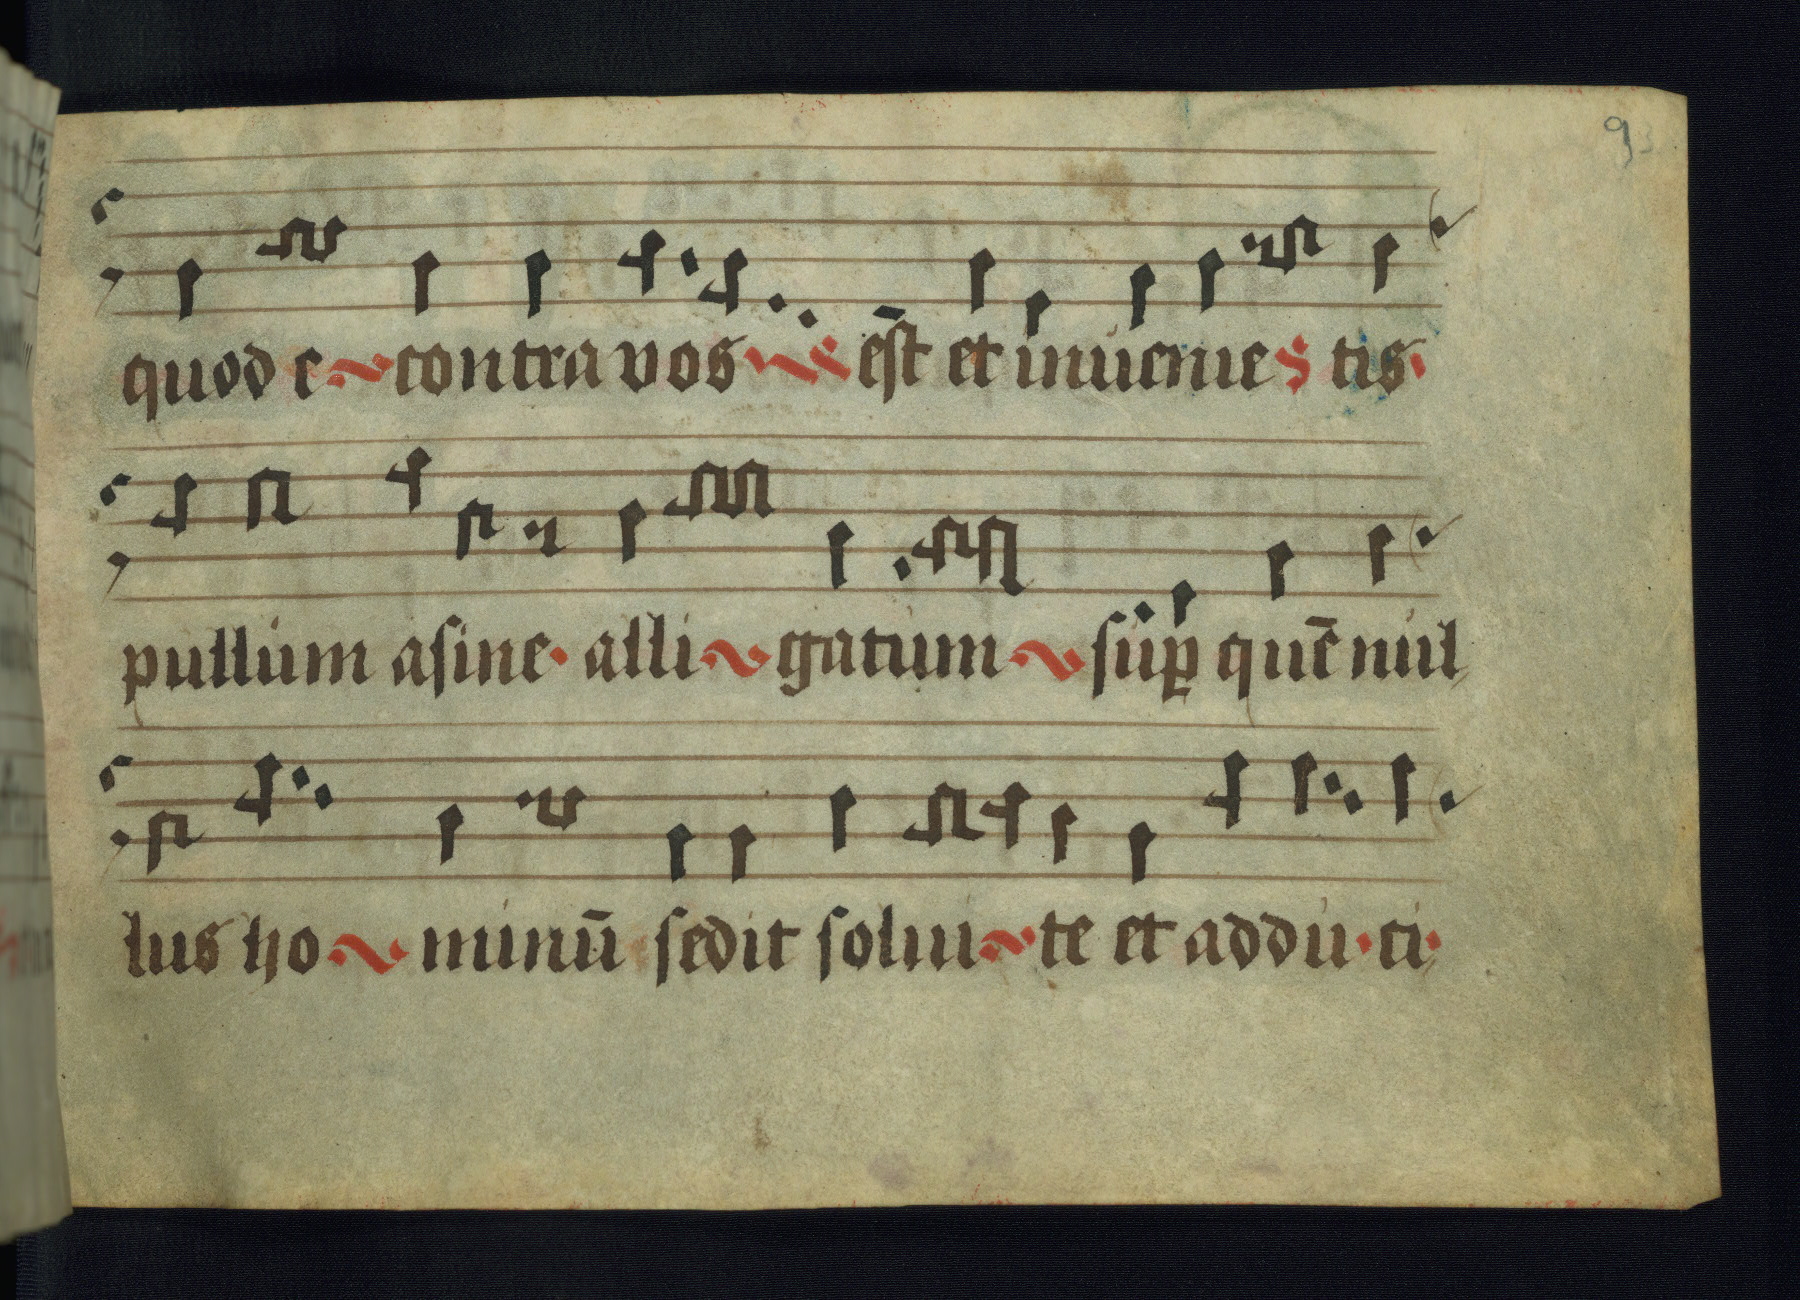 93
quod e contra vos est et inuenie tis
pullum asine alli gatum sup quē nul
lus ho minū sedit solui te et addu ci